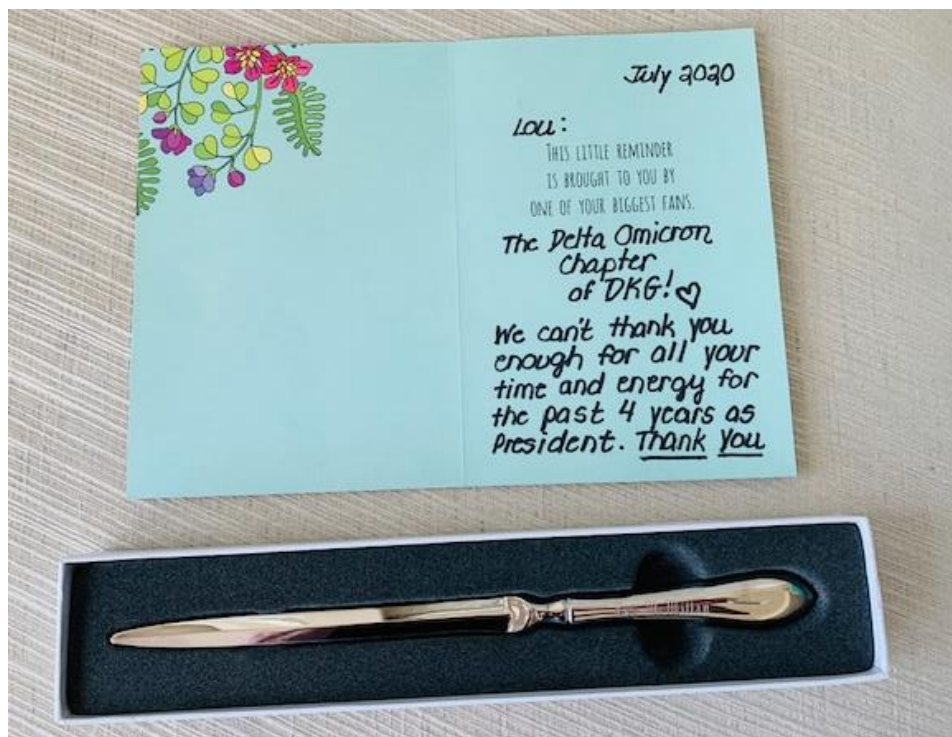 July 2020
Lou:
THIS LITTLE REMINDER
IS BROUGHT TO YOU BY
ONE OF YOUR BIGGEST FANS.
The Delta Omicron
Chapter
of DKG!
We can't thank you
enough for all your
time and energy for
the past 4 years as
President. Thank You